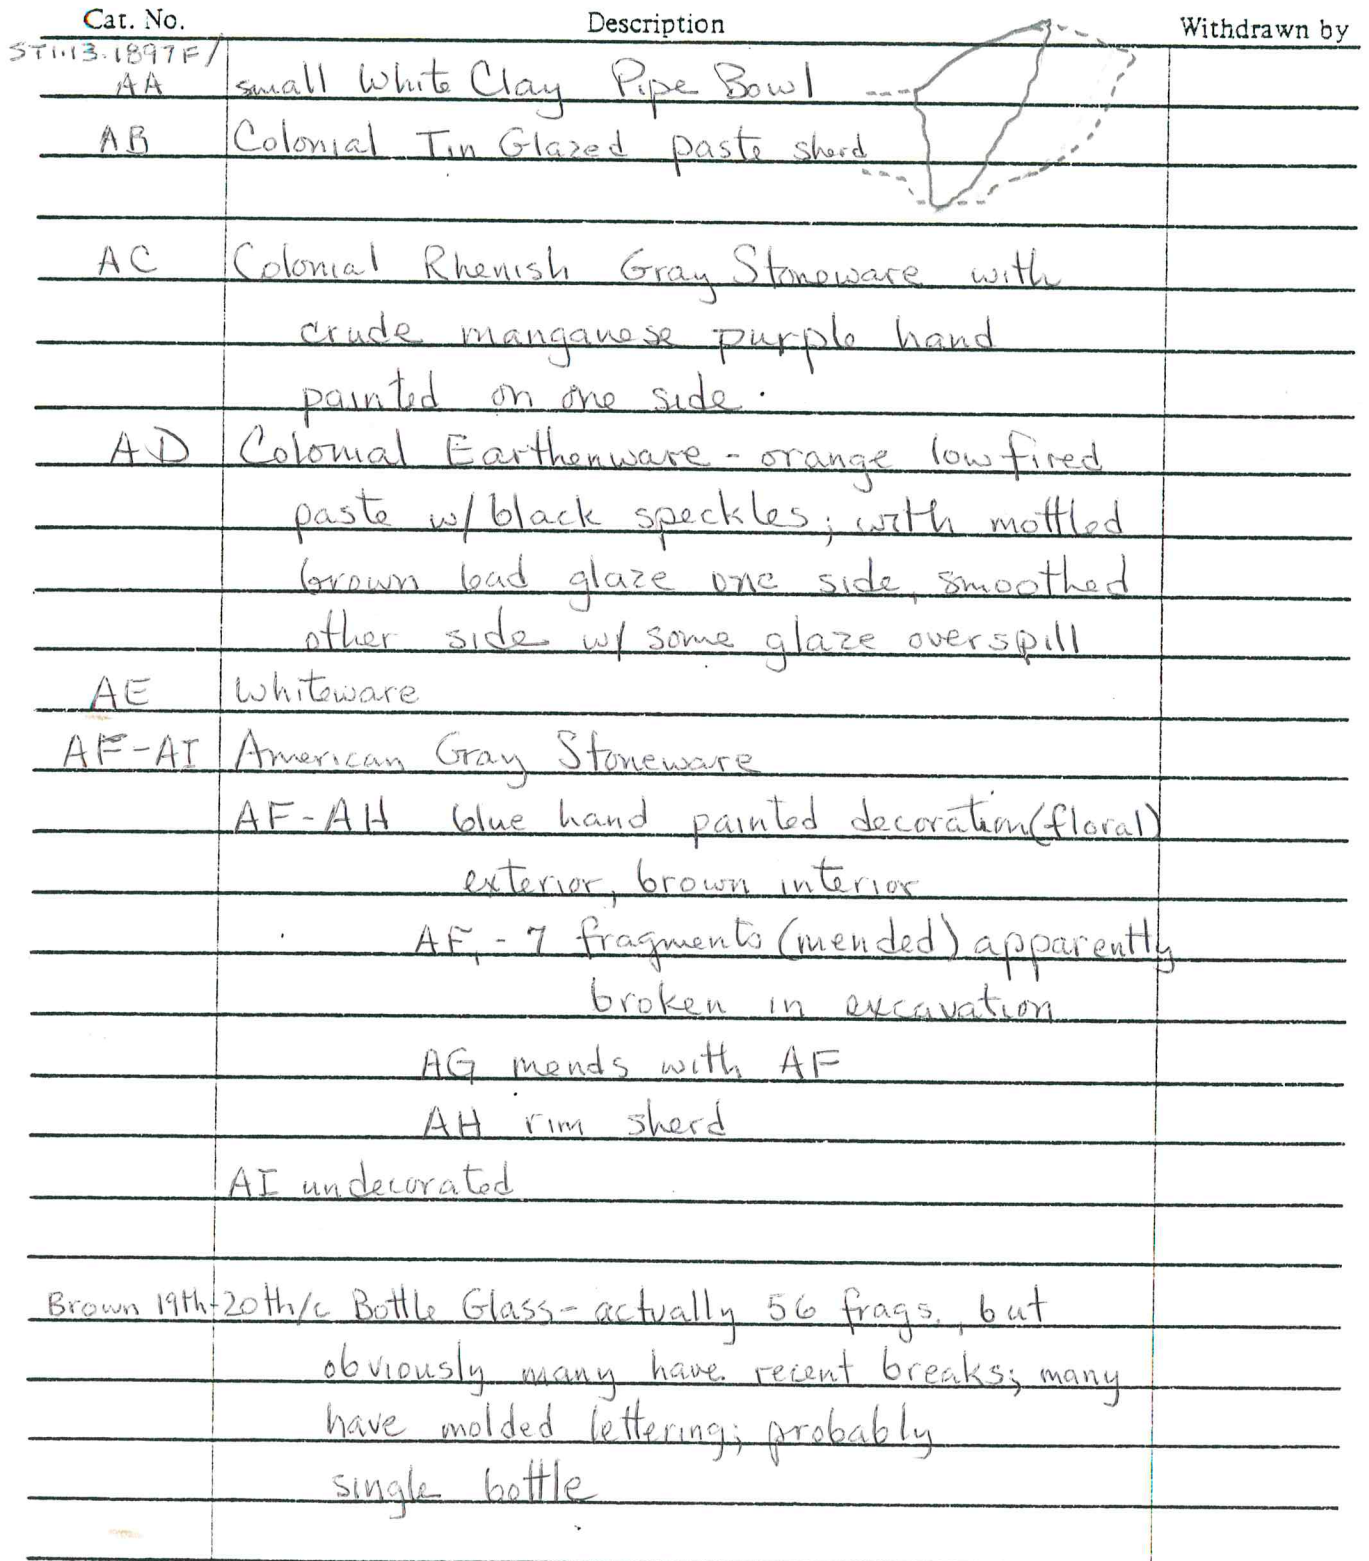 Cat. No. Description Withdrawn by
ST1.13.1897F/
AA small White Clay Pipe Bowl
AB Colonial Tin Glazed paste sherd
AC Colonial Rhenish Gray Stoneware with
crude manganese purple hand
painted on one side.
AD Colonial Earthenware - orange low fired
paste w/ black speckles; with mottled
brown lead glaze one side, smoothed
other side w/ some glaze overspill
AE Whiteware
AF-AI American Gray Stoneware
AF-AH blue hand painted decoration (floral)
exterior, brown interior
AF, - 7 fragments (mended) apparently
broken in excavation
AG mends with AF
AH rim sherd
AI undecorated
Brown 19th-20th/c Bottle Glass - actually 56 frags., but
obviously many have recent breaks; many
have molded lettering; probably
single bottle